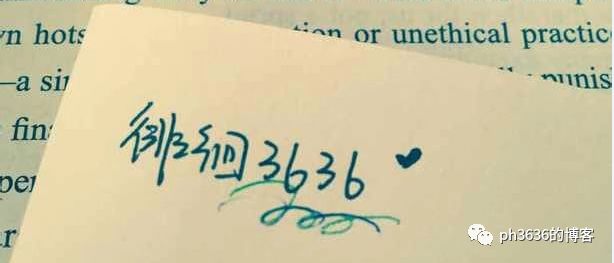 hots tion or unethical practic
–a si punis
fin
per
徘徊3636
ph3636的博客